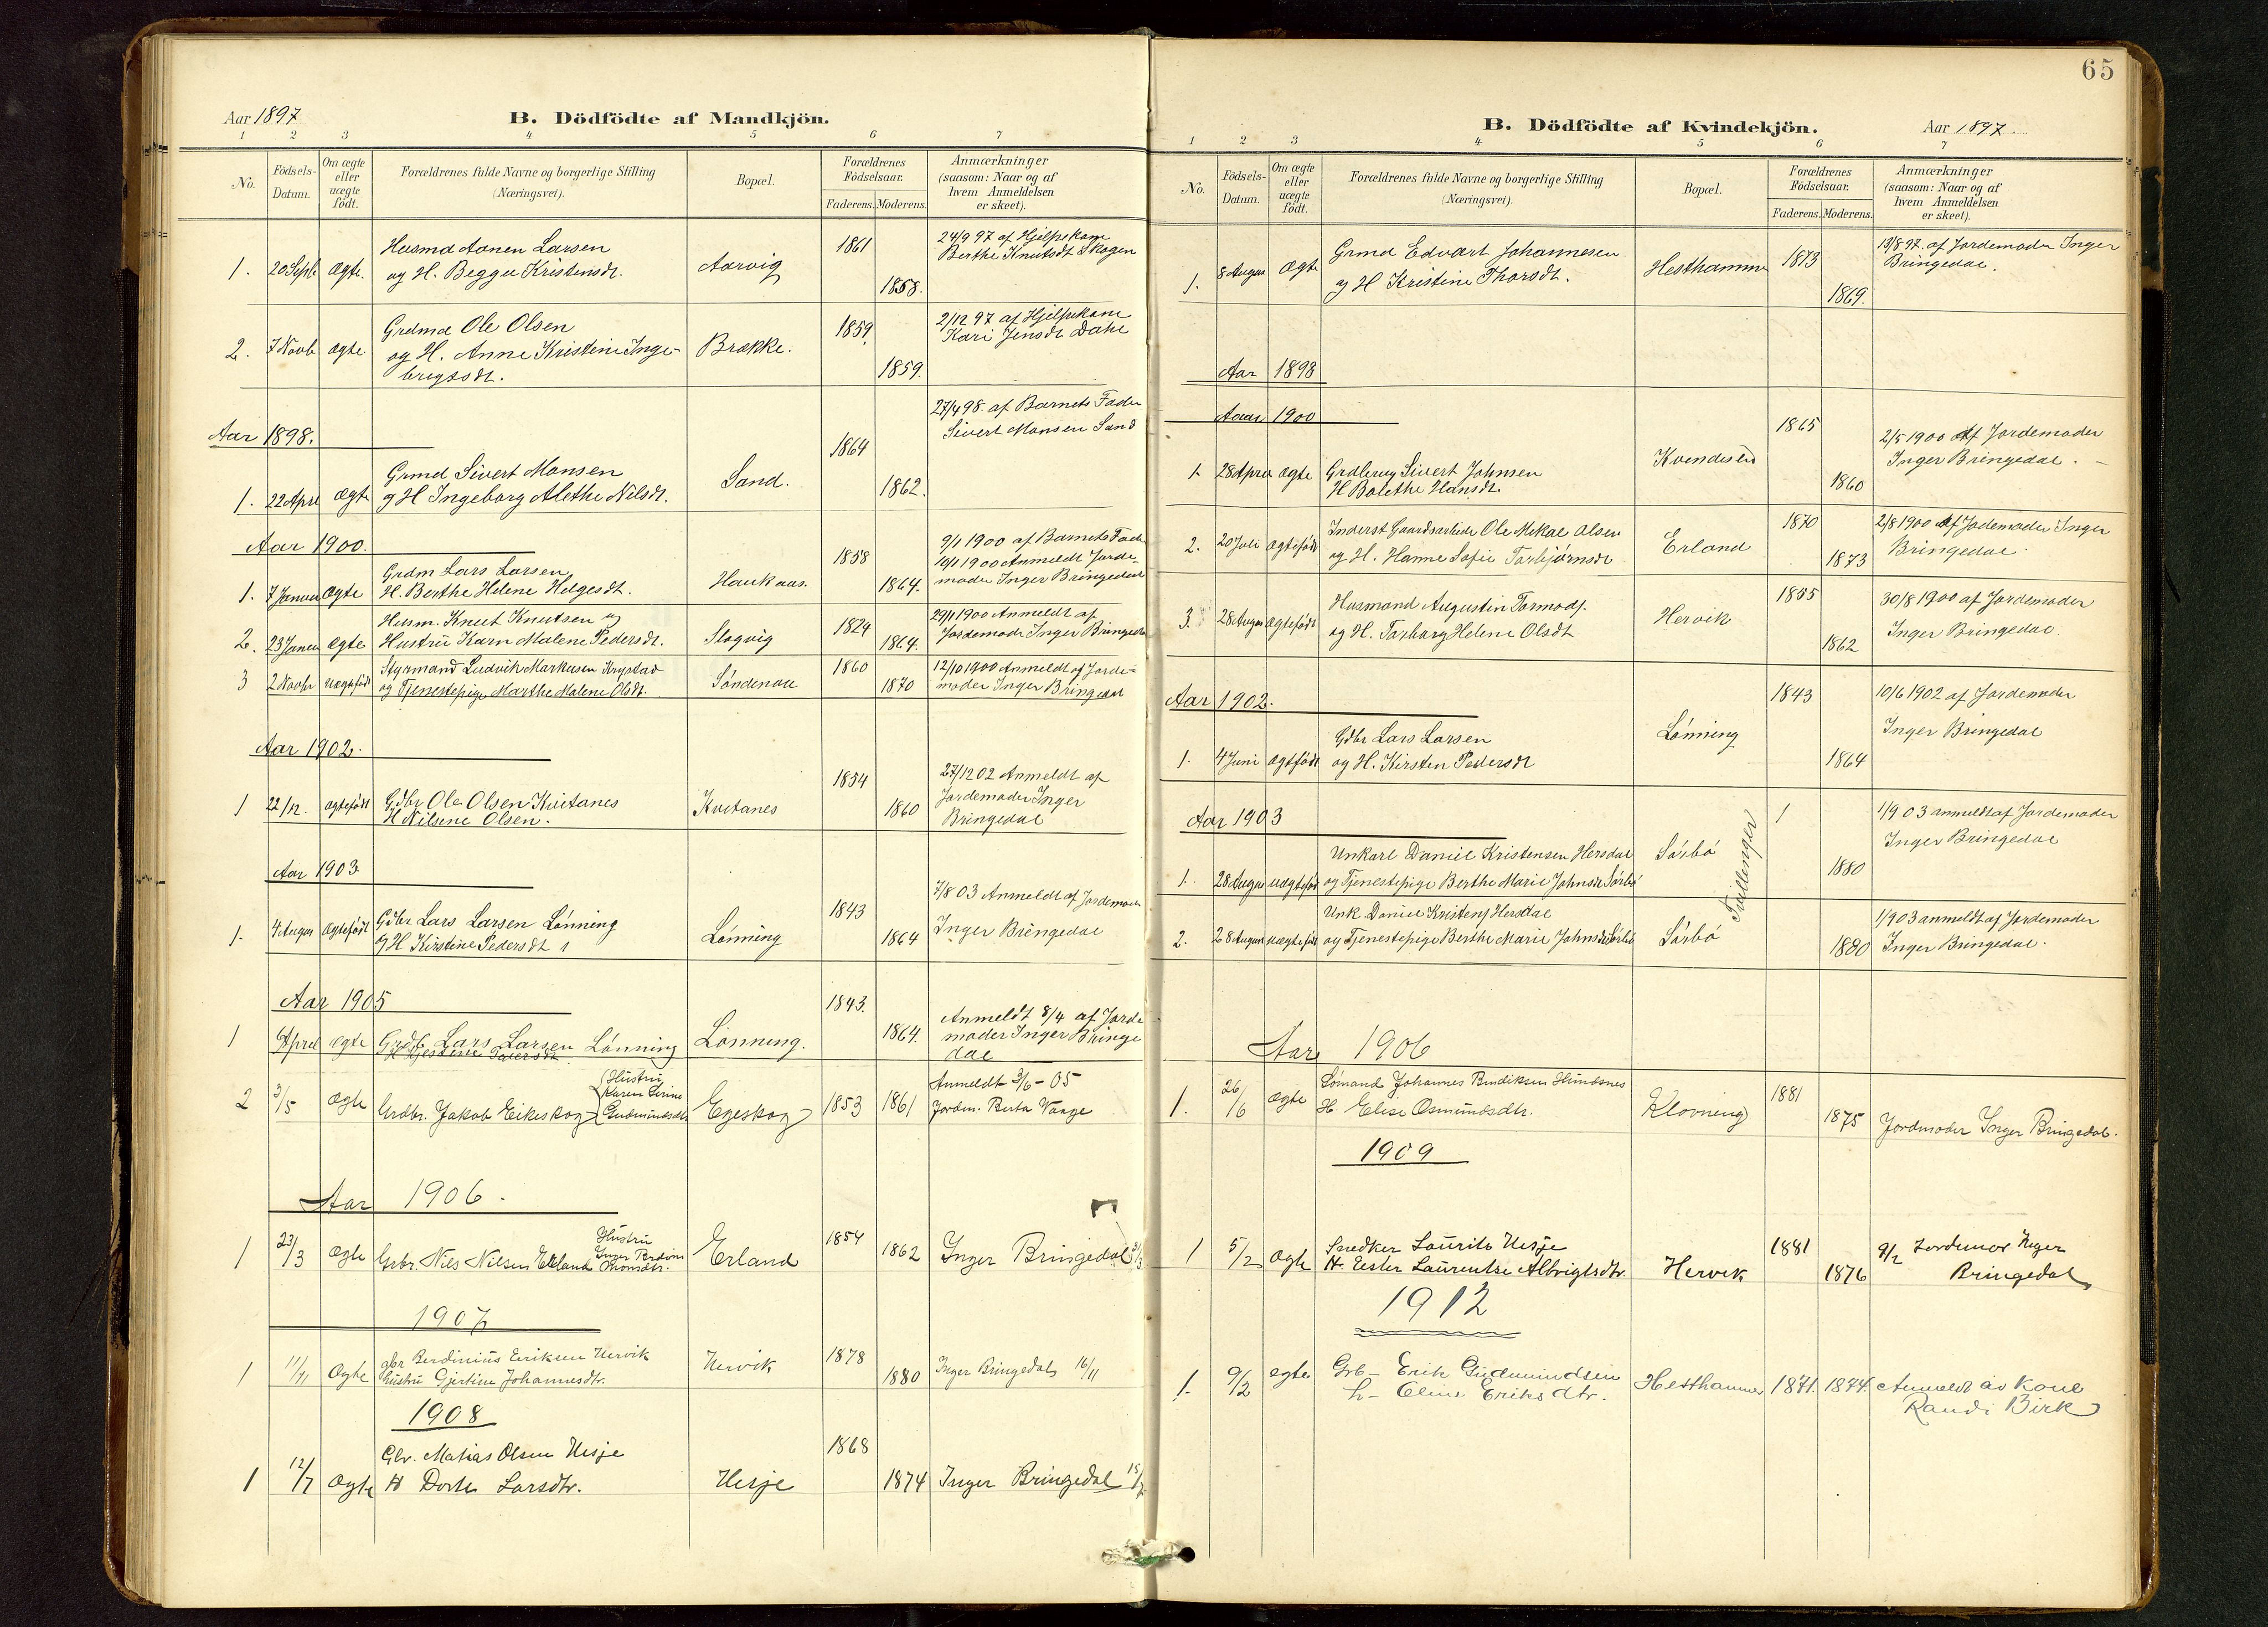 65
Aar 1897
B. Dödfödte af Mandkjön.
1 2 3 4 5 6 7
No.
Födsels-Datum.
Om ægte eller uægte födt.
Forældrenes fulde Navne og borgerlige Stilling
(Næringsvei).
Bopæl.
Forældrenes Födselsaar.
Faderens. Moderens.
Anmærkninger
(saasom: Naar og af
hvem Anmeldelsen
er skeet).
1. 20 Septb ægte. Husmd Aanen Larsen
og H. Begga Kristensdt. Aarvig 1861 1858.
24/9 97 af Hjelpekone
Berthe Knutsdt Skogen
2. 7 Novb ægte Grdmd Ole Olsen
og H. Anne Kristine Inge-
brigtsdt. Brække. 1859 1859.
2/12 97 af Hjelpekone
Kari Jensdt Dahl
Aar 1898.
1. 22 Apr ægte Grmd Sivert Monsen
og H Ingeborg Alethe Nilsdt. Sand. 1864 1862.
27/4 98. af Barnets Fader
Sivert Monsen Sand
Aar 1900.
1. 7 Januar ægte Grdm Lars Larsen
H. Berthe Helene Helgesdt. Haukaas. 1858 1864.
9/1 1900 af Barnets Fader
10/1 1900 Anmeldt Jorde-
moder Inger Bringedal
2. 23 Januar ægte Husm. Knut Knutsen og
Hustru Karn Malene Pedersdt. Slogvig 1824 1864.
29/1 1900 Anmeldt af
Jordemoder Inger Bringedal
3 2 Novbr uægtefödt Styrmand Ludvik Markusen Krystad
og Tjenestepige Marthe Malene Olsdt. Söndenaa 1860 1870
12/10 1900 Anmeldt af Jorde-
moder Inger Bringedal
Aar 1902.
1 22/12. ægtefödt Gdbr Ole Olsen Kvitanes
H Nilsine Olsen. Kvitanes 1854 1860
27/12 02 Anmeldt af
Jordemoder Inger
Bringedal
Aar 1903
1. 4 Augus ægtefödt Gdbr Lars Larsen Lönning
og H Kirstine Pedersdt Lönning 1843 1864
7/8 03 Anmeldt af Jordemoder
Inger Bringedal
Aar 1905
1 April ægte Grdb Lars Larsen Lönning
Lönning. 1843. 1864.
Anmeldt 8/4 af Jorde
moder Inger Bringe
dal
2 3/5 ægte Grdbr. Jakob Eikeskog Hustru
Karen Serine
Gudmundsdtr Egeskog 1853 1861
Anmeldt 3/6 - 05
Jordm. Berta Vaage
Aar 1906.
1 23/3 ægte Grbr. Nils Nilsen Erland Hustru
Inger
Erland 1854 1862 Inger Bringedal
1907
1 11/11 ægte gbr Berdinius Eriksen Hervik
hustru Gjertine Johannesdtr. Hervik 1878 1880 Inger Bringedal 16/11
1908
1 12/7 ægte Gbr. Matias Olsen Hesje
H Dorte Larsdtr. Hesje 1868 1874 Inger Bringedal
B. Dödfödte af Kvindekjön.
Aar 1897.
1 2 3 4 5 6 7
No.
Födsels-Datum.
Om ægte eller uægte födt.
Forældrenes fulde Navne og borgerlige Stilling
(Næringsvei).
Bopæl.
Forældrenes Födselsaar.
Faderens. Moderens.
Anmærkninger
(saasom: Naar og af
hvem Anmeldelsen
er skeet).
1. 8 Augus ægte Grmd Edvart Johannesen
og H Kristine Thorsdt. Hesthammer 1873 1869.
13/8 97. af Jordemoder Inger
Bringedal.
Aar 1898
Aar 1900
1 28 April ægte Grdbrug Sivert Johnsen
H Bolethe Hansdt. Kvendeslid 1865 1860
2/5 1900 Af Jordemoder
Inger Bringedal. -
2. 20 Juli ægtefödt Inderst Gaardsarbeider Ole Mikal Olsen
og H. Hanne Sofie Torbjörnsdt Erland 1870 1873
2/8 1900 af Jordemoder Inger
Bringedal.
3. 28 Augus ægtefödt Husmand Augustin Tormods.
og H. Torborg Helene Olsdt Hervik 1855 1862
30/8 1900 af Jordemoder
Inger Bringedal.
Aar 1902.
1. 4 Juni ægtfödt Gdbr Lars Larsen
og H. Kirsten Pedersdt Lönning 1843 1864
10/6 1902 af Jordemoder
Inger Bringedal
Aar 1903
1. 28 Augus uægtefödt Unkarl Daniel Kristensen Hersdal
og Tjenestepige Berthe Marie Johnsdt Sörbö Sörbö 1 1880
1/9 03 anmeldt af Jordemoder
Inger Bringedal
Tvillinger
2. 28 August uægtefödt Unk Daniel Kristens Hersdal
og Tjenestepige Berthe Marie Johnsdt Sörbö Sörbö 1880
1/9 03 anmeldt af Jordemoder
Inger Bringedal.
Aar 1906
1. 26/6 ægte Sömand Johannes Hundsnes
H. Elise Osmundsdtr. Klovning 1881 1875 Jordmoder Inger Bringedal.
1909
1 5/2 ægte Snedker Laurits Hesje
H. Ester Laurentse Albrigtsdtr. Hervik 1881 1876 9/2 Jordemor Inger
Bringedal
1912
1. 9/2 egte Grb- Erik Gudmundsen
h- Oline Eriksdtr. Hesthammer 1871. 1874. Anmeldt av kone
Randi Birk